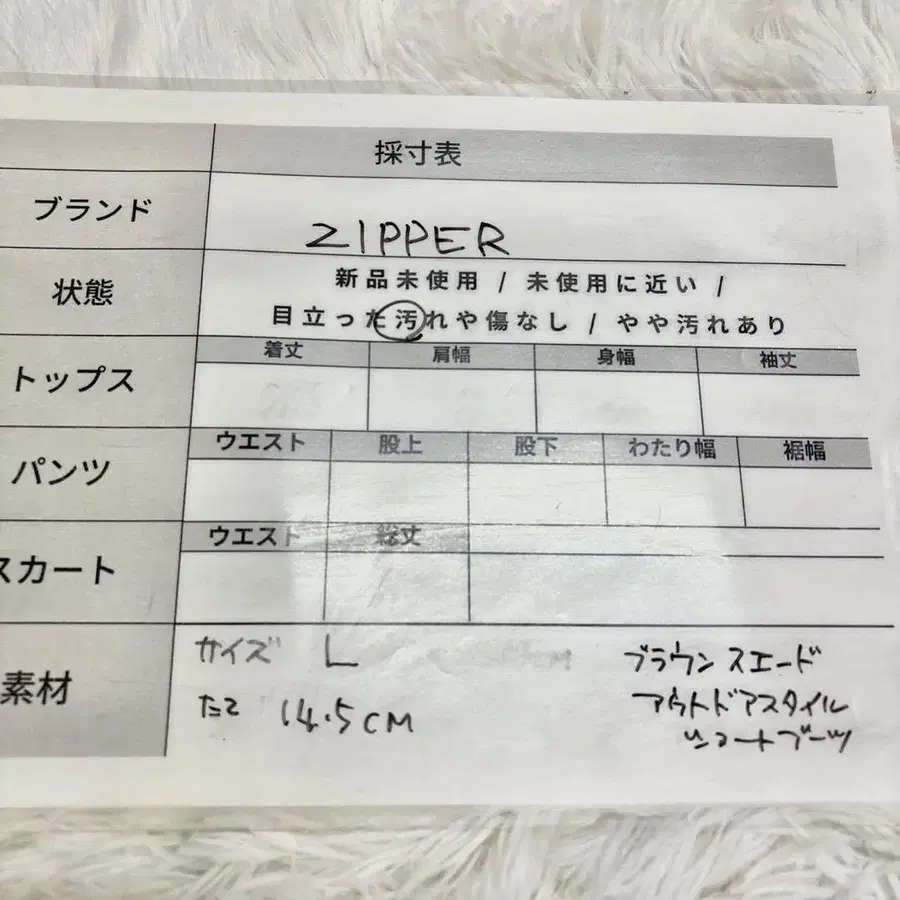 採寸表
ブランド
ZIPPER
状態
新品未使用 / 未使用に近い /
目立った汚れや傷なし / やや汚れあり
トップス
着丈 肩幅 身幅 袖丈
パンツ
ウエスト 股上 股下 わたり幅 裾幅
スカート
ウエスト 総丈
素材
サイズ L
たて 14.5CM
ブラウンスエード
アウトドアスタイル
ショートブーツ